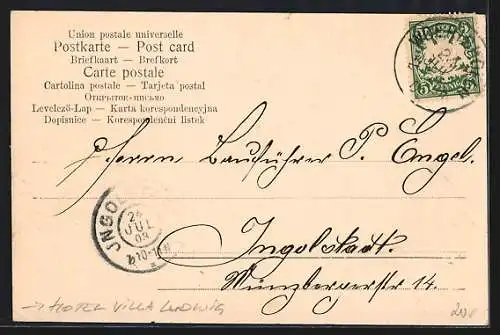 Union postale universelle
Postkarte — Post card
Briefkaart — Brefkort
Carte postale
Cartolina postale — Tarjeta postal
Открытое-письмо
Levelező-Lap — Karta korespondencyjna
Dopisnice — Korespondenční listek
5 5
Herrn Bauführer P. Engel.
INGO
JUL
Ingolstadt.
Münzbergerstr 14.
→ HOTEL VILLA LUDWIG